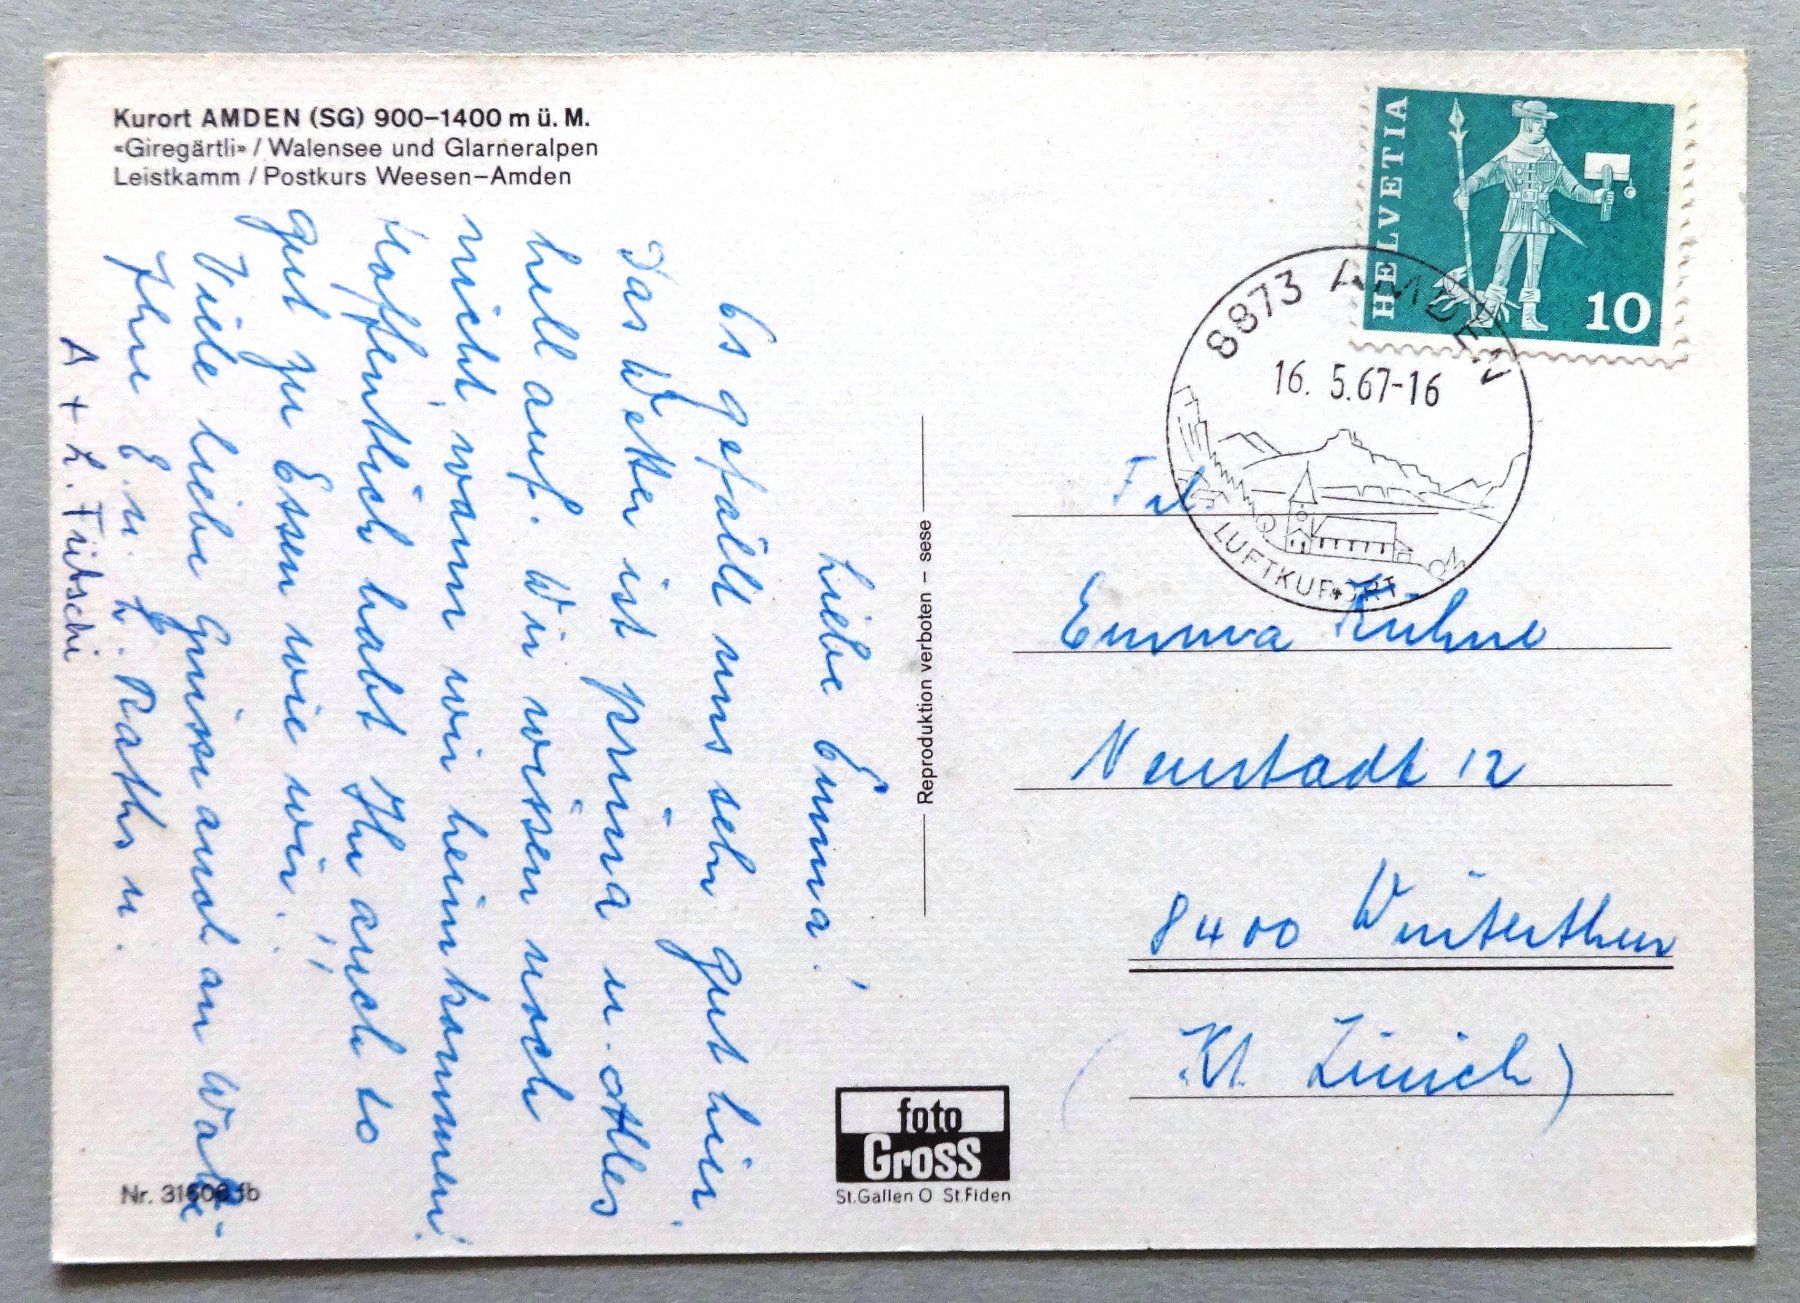 Kurort AMDEN (SG) 900–1400 m ü. M.
«Giregärtli» / Walensee und Glarneralpen
Leistkamm / Postkurs Weesen–Amden
Liebe Emma!
Es gefällt uns sehr gut hier.
Das Wetter ist prima u. Alles
hell auf. Wir wissen noch
nicht, wann wir heimkommen!
Hoffentlich habt Ihr auch so
gut zu Essen wie wir!
Viele liebe Grüsse auch an
Ihre E. u. L. Raths u.
A + L. Fütschi
Reproduktion verboten – sese
HELVETIA
10
8873 AMDEN
16. 5.67-16
LUFTKURORT
Emma Kuhne
Neustadt 12
8400 Winterthur
(Kt. Zürich)
foto
Gross
St.Gallen O St.Fiden
Nr.